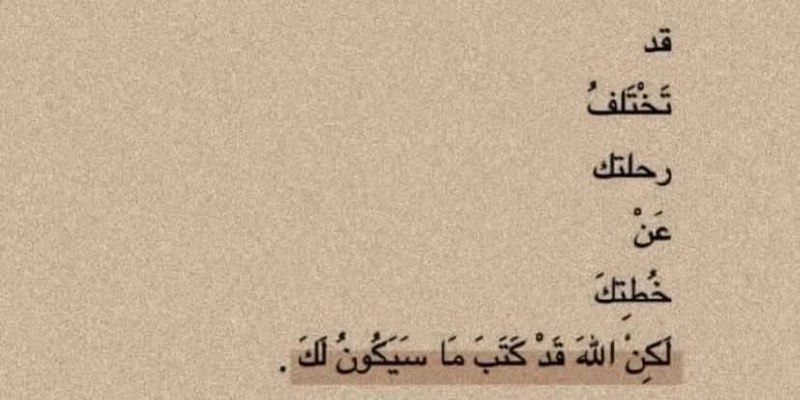 قد
تَخْتَلفُ
رحلتك
عَنْ
خُطتِكَ
لَكِنْ اللهَ قَدْ كَتَبَ مَا سَيَكُونُ لَكَ .